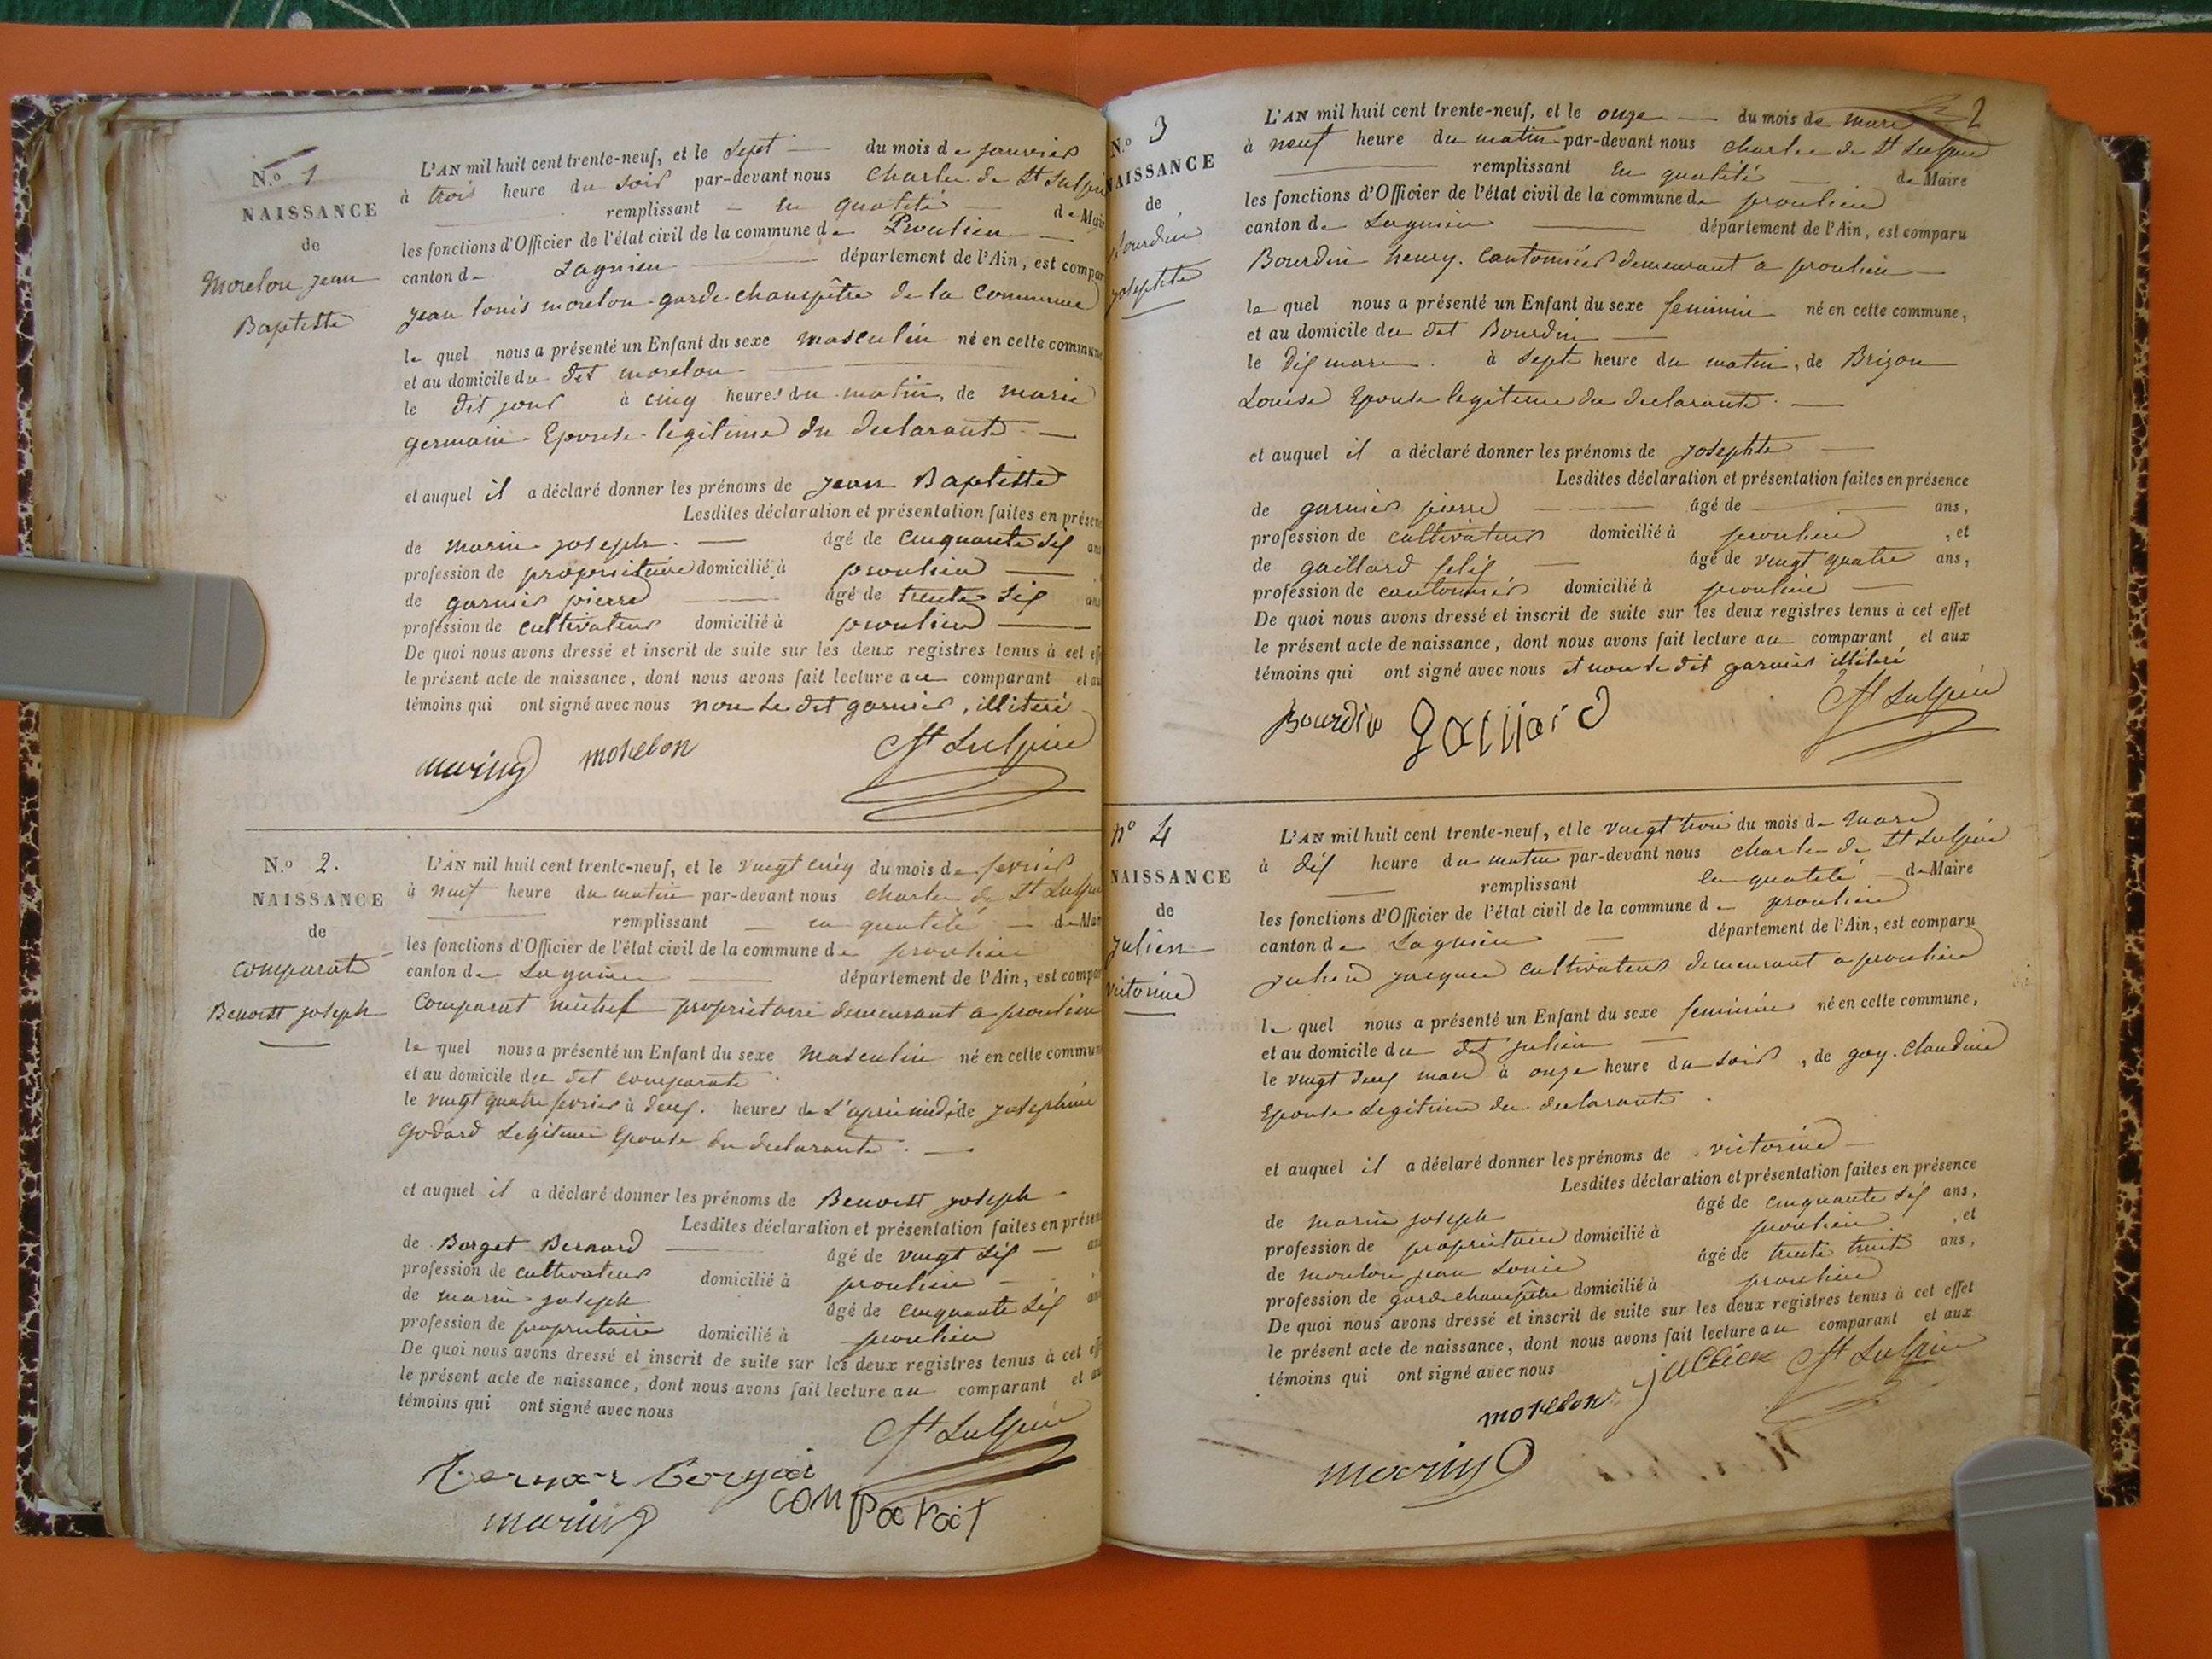 N.o 1
NAISSANCE
de
Morelon Jean
Baptiste
L'AN mil huit cent trente-neuf, et le Sept du mois de janvier
à trois heure du soir par-devant nous Charle de St Sulpice
remplissant en qualité de Mair
les fonctions d'Officier de l'état civil de la commune de Proulieu
canton de Lagnieu département de l'Ain, est compar
jean louis morelon garde champêtre de la Commune
le quel nous a présenté un Enfant du sexe masculin né en cette commune
et au domicile du dit morelon
le dit jour à cinq heures du matin, de marie
germain Epouse legitime du declarante
et auquel il a déclaré donner les prénoms de Jean Baptiste
Lesdites déclaration et présentation faites en présen
de marin joseph âgé de cinquante dix ans
profession de propriétaire domicilié à proulieu
de garnier pierre âgé de trente six ans
profession de cultivateur domicilié à proulieu
De quoi nous avons dressé et inscrit de suite sur les deux registres tenus à cet eff
le présent acte de naissance, dont nous avons fait lecture au comparant et au
témoins qui ont signé avec nous non le dit garnier, illiteré
marin morelon St Sulpice
N.o 2.
NAISSANCE
de
comparate
Benoist joseph
L'AN mil huit cent trente-neuf, et le vingt cinq du mois de fevrier
à neuf heure du matin par-devant nous charle de St Sulpice
remplissant en qualité de Mair
les fonctions d'Officier de l'état civil de la commune de proulieu
canton de Lagnieu département de l'Ain, est compar
Comparat michel propriétaire demeurant a proulieu
le quel nous a présenté un Enfant du sexe masculin né en cette commun
et au domicile du dit comparate
le vingt quatre fevrier à deux heures de L'après midi, de Josephine
Godard Legitime Epouse du declarante
et auquel il a déclaré donner les prénoms de Benoist joseph
Lesdites déclaration et présentation faites en présen
de Borget Bernard âgé de vingt six ans
profession de cultivateur domicilié à proulieu
de marin joseph âgé de cinquante dix ans
profession de propriétaire domicilié à proulieu
De quoi nous avons dressé et inscrit de suite sur les deux registres tenus à cet eff
le présent acte de naissance, dont nous avons fait lecture au comparant et au
témoins qui ont signé avec nous
St Sulpice
comparat
marin
2
N.o 3
NAISSANCE
de
Bourdin
josephte
L'AN mil huit cent trente-neuf, et le onze du mois de mars
à neuf heure du matin par-devant nous charle de St Sulpice
remplissant en qualité de Maire
les fonctions d'Officier de l'état civil de la commune de proulieu
canton de Lagnieu département de l'Ain, est comparu
Bourdin henry. Cantonnier demeurant a proulieu
le quel nous a présenté un Enfant du sexe feminin né en cette commune,
et au domicile du dit Bourdin
le dix mars à sept heure du matin, de Brizon
Louise Epouse legitime du declarante
et auquel il a déclaré donner les prénoms de josephte
Lesdites déclaration et présentation faites en présence
de garnier pierre âgé de ans,
profession de cultivateur domicilié à proulieu, et
de gaillard felix âgé de vingt quatre ans,
profession de cantonnier domicilié à proulieu
De quoi nous avons dressé et inscrit de suite sur les deux registres tenus à cet effet
le présent acte de naissance, dont nous avons fait lecture au comparant et aux
témoins qui ont signé avec nous et non le dit garnier illiteré
Bourdin St Sulpice
No 4
NAISSANCE
de
Julien
victorine
L'AN mil huit cent trente-neuf, et le vingt trois du mois de mars
à dix heure du matin par-devant nous charle de St Sulpice
remplissant en qualité de Maire
les fonctions d'Officier de l'état civil de la commune de proulieu
canton de Lagnieu département de l'Ain, est comparu
Julien jacques cultivateur demeurant a proulieu
le quel nous a présenté un Enfant du sexe feminin né en cette commune,
et au domicile du dit julien
le vingt deux mars à onze heure du soir, de goy. Claudine
Epouse Legitime du declarante
et auquel il a déclaré donner les prénoms de victorine
Lesdites déclaration et présentation faites en présence
de marin joseph âgé de cinquante dix ans,
profession de propriétaire domicilié à proulieu, et
de morelon jean Louis âgé de trente ans,
profession de garde champêtre domicilié à proulieu
De quoi nous avons dressé et inscrit de suite sur les deux registres tenus à cet effet
le présent acte de naissance, dont nous avons fait lecture au comparant et aux
témoins qui ont signé avec nous
morelon St Sulpice
marin